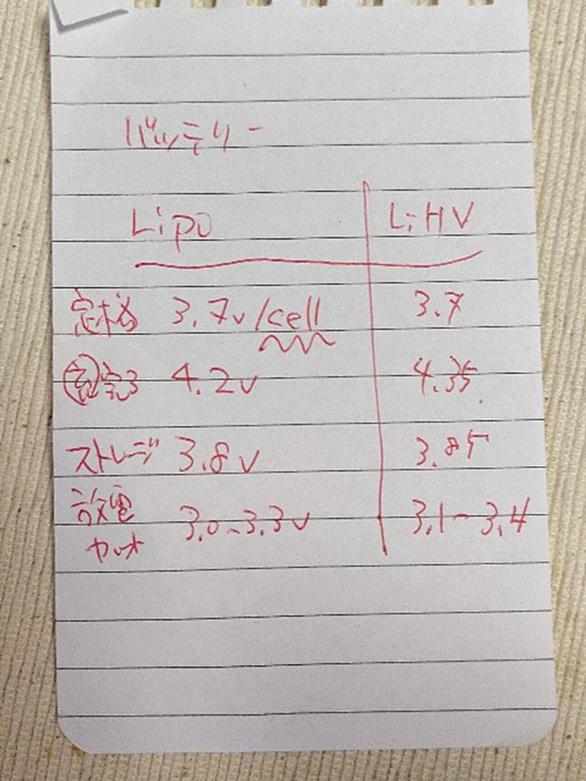 バッテリー
Lipo LiHV
定格 3.7v/cell 3.7
充 4.2v 4.35
ストレージ 3.8v 3.85
放電 3.0-3.3v 3.1-3.4
カット